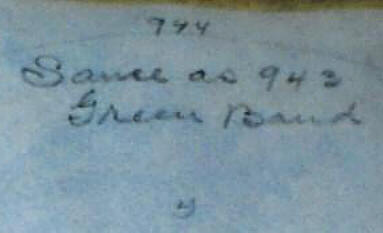 944
Same as 943
Green Band